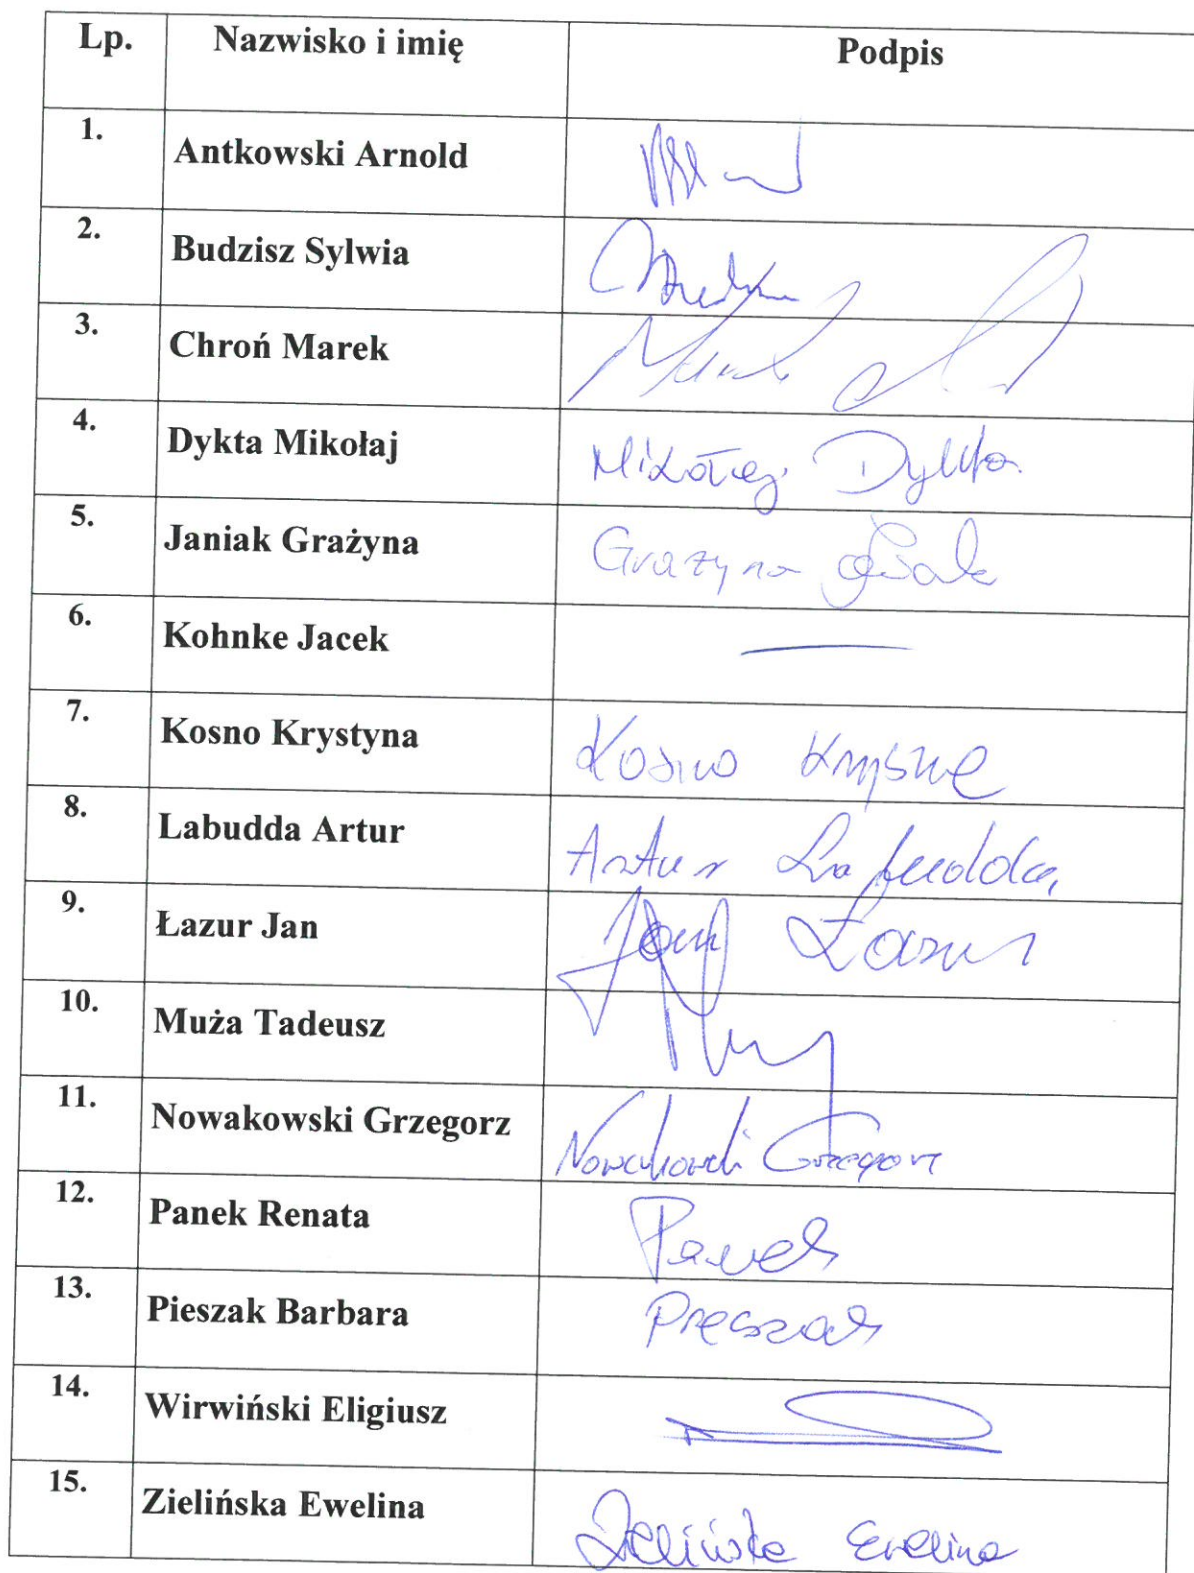 Lp. Nazwisko i imię Podpis
1. Antkowski Arnold
2. Budzisz Sylwia
3. Chroń Marek Marek
4. Dykta Mikołaj Mikołaj Dykta
5. Janiak Grażyna Grażyna
6. Kohnke Jacek —
7. Kosno Krystyna Kosno
8. Labudda Artur Artur Labudda
9. Łazur Jan Jan Łazur
10. Muża Tadeusz
11. Nowakowski Grzegorz Nowakowski Grzegorz
12. Panek Renata Panek
13. Pieszak Barbara Pieszak
14. Wirwiński Eligiusz
15. Zielińska Ewelina Zielińska Ewelina